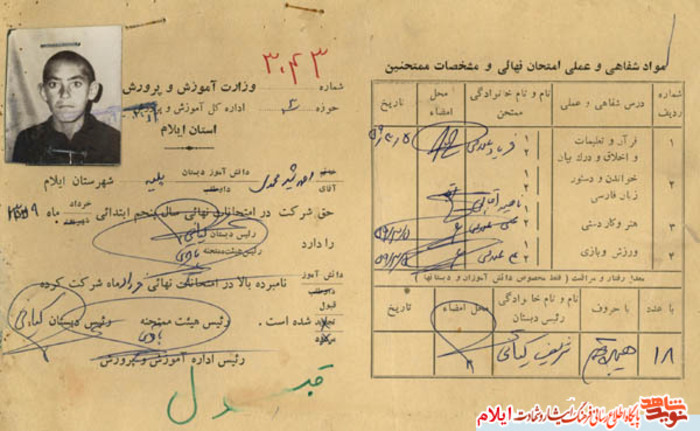 ۳۰۴۳
وزارت آموزش و پرورش
شماره
اداره کل آموزش و پرورش
حوزه
استان ایلام
دانش آموز دبستان
شهرستان ایلام
آقای
داوطلب
حق شرکت در امتحانات نهائی سال پنجم ابتدائی خرداد ماه ۱۳۵۹
شهریور
را دارد
رئیس دبستان کیانی
رئیس هیئت ممتحنه
دانش آموز
نامبرده بالا در امتحانات نهائی خرداد ماه شرکت کرده
داوطلب
قبول
شده است.
رئیس هیئت ممتحنه
رئیس دبستان کیانی
رئیس اداره آموزش و پرورش
قبول
مواد شفاهی و عملی امتحان نهائی و مشخصات ممتحنین
شماره ردیف
درس شفاهی و عملی
نام و نام خانوادگی ممتحن
محل امضاء
تاریخ
۱
قرآن و تعلیمات و اخلاق و درک بیان
۱
۲
۲
خواندن و دستور زبان فارسی
۱
۲
۳
هنر و کار دستی
۱
۲
۴
ورزش و بازی
۱
۲
معدل رفتار و مراقبت (فقط مخصوص دانش آموزان و دبستانها)
با عدد
با حروف
نام و نام خانوادگی رئیس دبستان
محل امضاء
تاریخ
۱۸
هیجده تمام
شریف کیانی
نوید شاهد
پایگاه اطلاع رسانی فرهنگ ایثار و شهادت ایلام